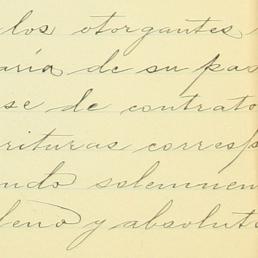 los otorgantes
aría de su pas
se de contrato
rituras corresp
ndo solemnem
leno y absolut